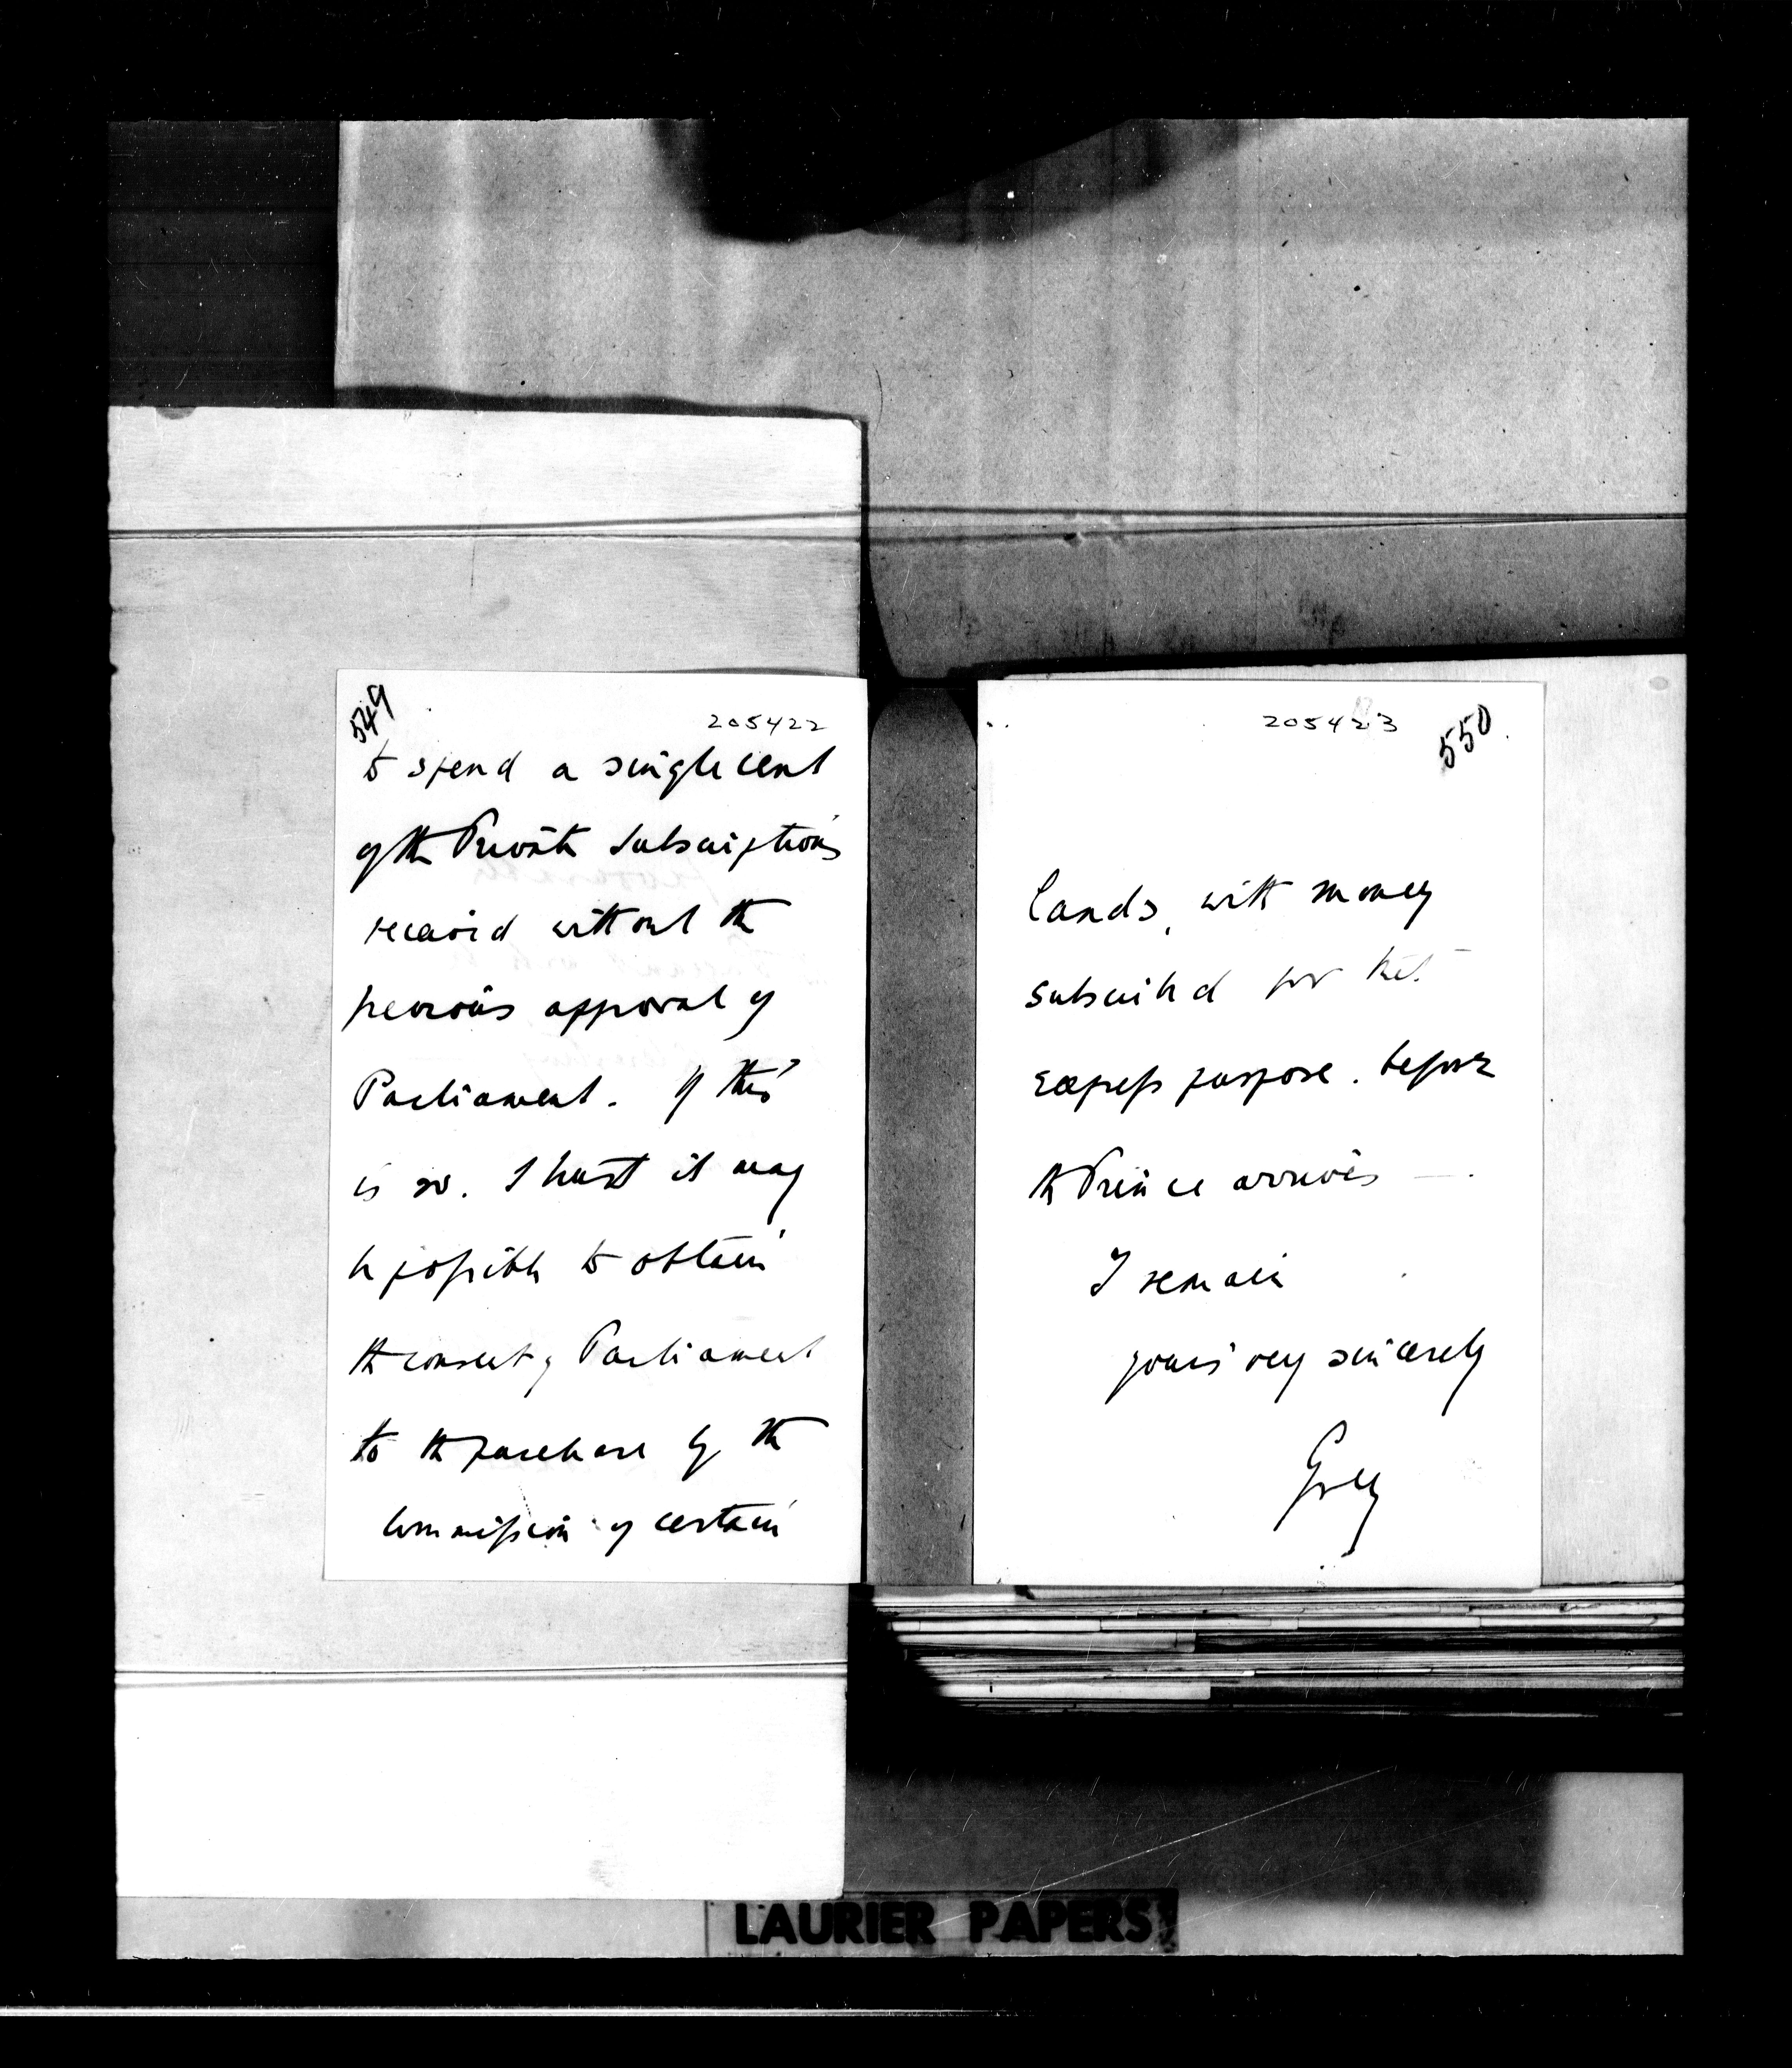 549
205422
to spend a single cent
of the Private Subscriptions
received without the
previous approval of
Parliament. If this
is so. I trust it may
be possible to obtain
the consent of Parliament
to the purchase by the
Commission of certain
205423
550
lands, with money
subscribed for that
express purpose. before
the Prince arrives —.
I remain
yours very sincerely
Grey
LAURIER PAPERS